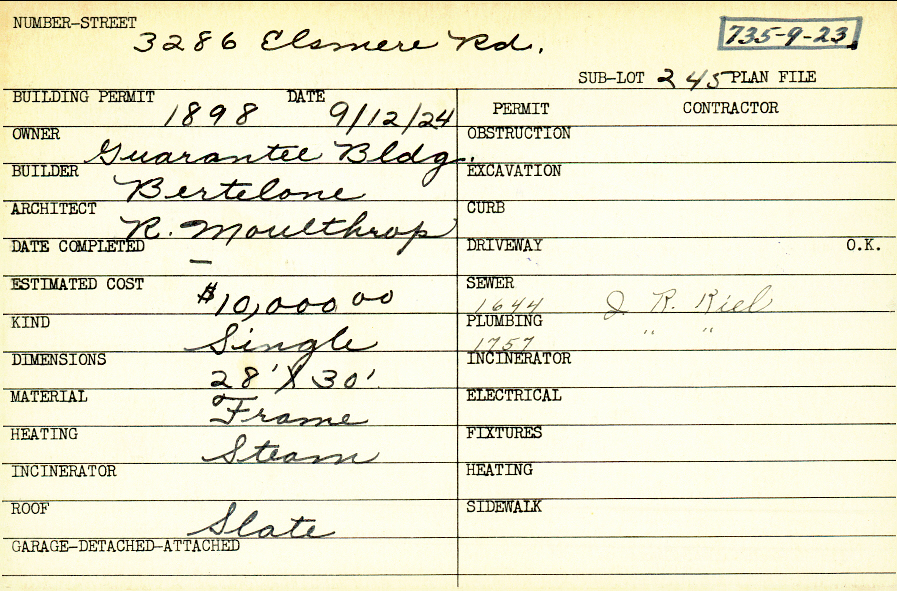 NUMBER-STREET
3286 Elsmere Rd.
735-9-23
SUB-LOT 245 PLAN FILE
BUILDING PERMIT 1898 DATE 9/12/24
PERMIT CONTRACTOR
OWNER Guarantee Bldg.
OBSTRUCTION
BUILDER Bertelone
EXCAVATION
ARCHITECT R. Moulthrop
CURB
DATE COMPLETED —
DRIVEWAY O.K.
ESTIMATED COST $10,000.00
SEWER
1644 J. R. Riel
KIND Single
PLUMBING
1757 " "
DIMENSIONS 28' X 30'
INCINERATOR
MATERIAL Frame
ELECTRICAL
HEATING Steam
FIXTURES
INCINERATOR
HEATING
ROOF Slate
SIDEWALK
GARAGE-DETACHED-ATTACHED